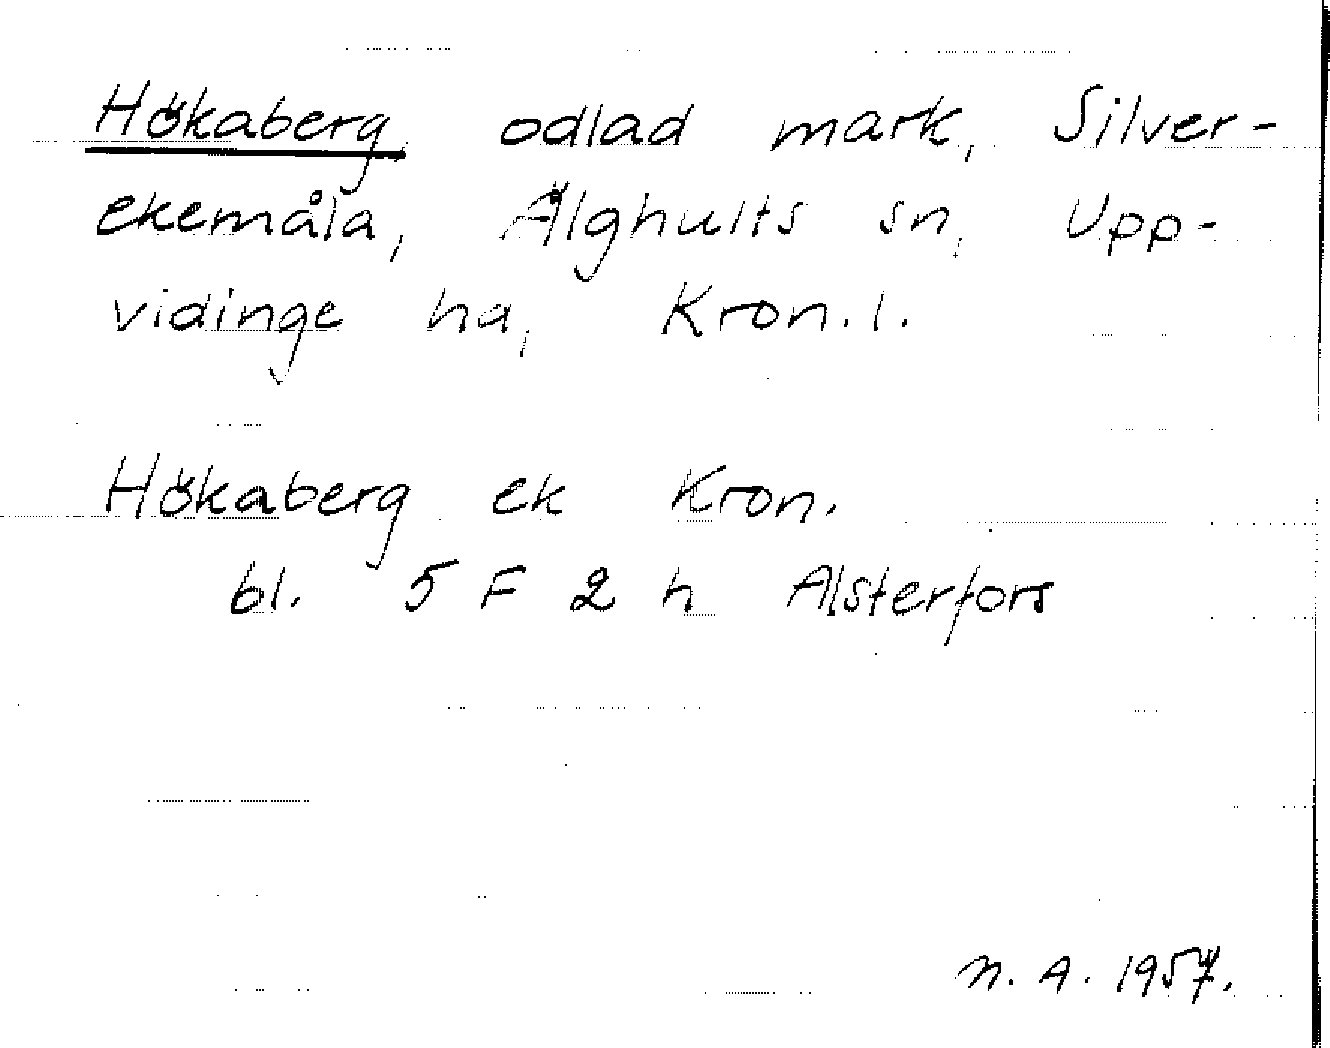 Hökaberg, odlad mark, Silver-
ekemåla, Älghults sn, Upp-
vidinge hd, Kron. l.
Hökaberg ek Kron.
bl. 5 F 2 h Alsterfors
N. A. 1957.